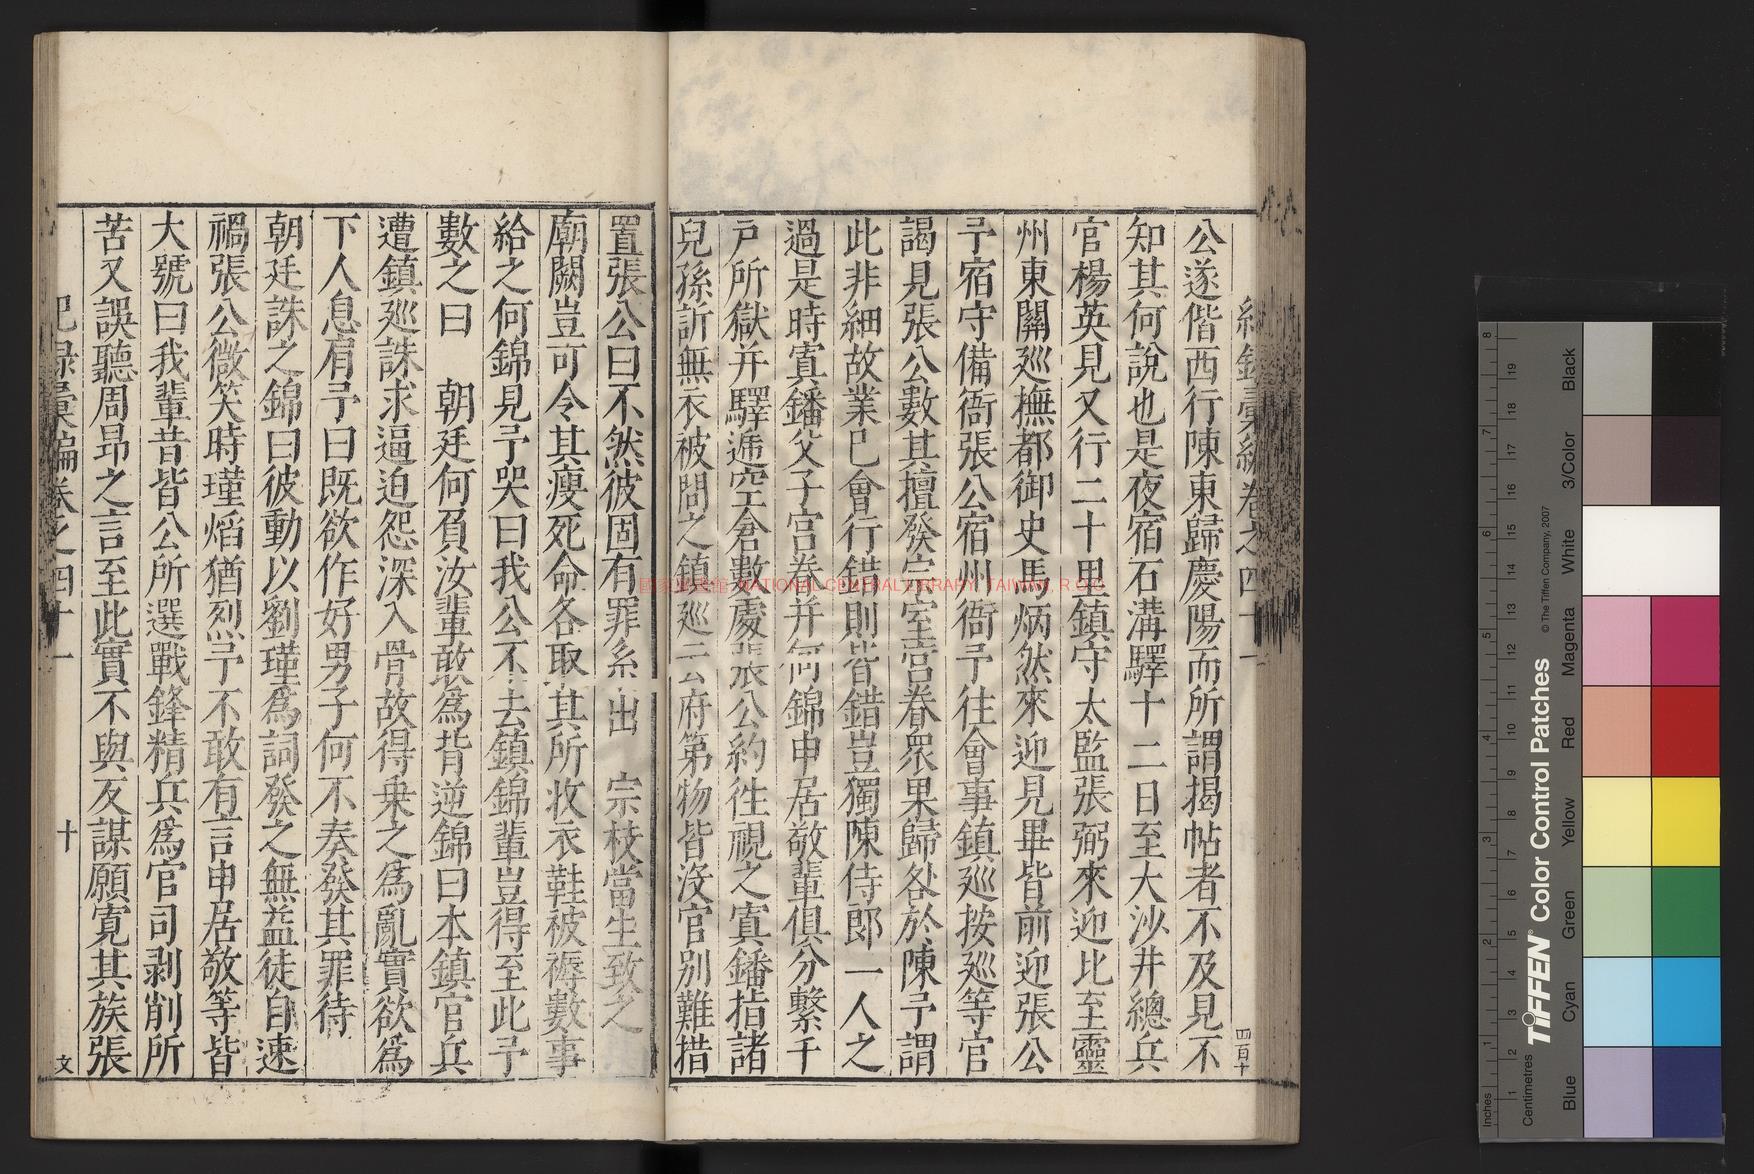 公遂偕西行陳東歸慶陽而所謂揭帖者不及見不
知其何說也是夜宿石溝驛十二日至大沙井總兵
官楊英見又行二十里鎮守太監張弼來迎比至靈
州東關巡撫都御史馬炳然來迎見畢皆前迎張公
予宿守備衙張公宿州衙予往會事鎮巡按巡等官
謁見張公數其擅發宗室宮眷衆果歸咎於陳予謂
此非細故業已會行錯則皆錯豈獨陳侍郎一人之
過是時寘鐇父子宮眷并何錦申居敬輩俱分繫千
戸所獄并驛遞空倉數處張公約徃視之寘鐇指諸
兒孫訴無衣被問之鎮巡云府第物皆沒官别難措
置張公曰不然彼固有罪系出 宗枝當生致之
廟闕豈可令其瘦死命各取其所收衣鞋被褥數事
給之何錦見予哭曰我公不去鎮錦輩豈得至此予
數之曰 朝廷何負汝輩敢爲背逆錦曰本鎮官兵
遭鎮廵誅求逼迫怨深入骨故得乗之爲亂實欲爲
下人息肩予曰既欲作好男子何不奏發其罪待
朝廷誅之錦曰彼動以劉瑾爲詞發之無益徒自速
禍張公微笑時瑾熖猶烈予不敢有言申居敬等皆
大號曰我輩昔皆公所選戰鋒精兵爲官司剥削所
苦又誤聽周昻之言至此實不與反謀願寛其族張
卷之四十一
十
文
四百十
國家圖書館 NATIONAL CENTRAL LIBRARY, TAIWAN, R.O.C
TIFFEN® Color Control Patches
© The Tiffen Company, 2007
Inches
Centimetres
Blue
Cyan
Green
Yellow
Red
Magenta
White
3/Color
Black